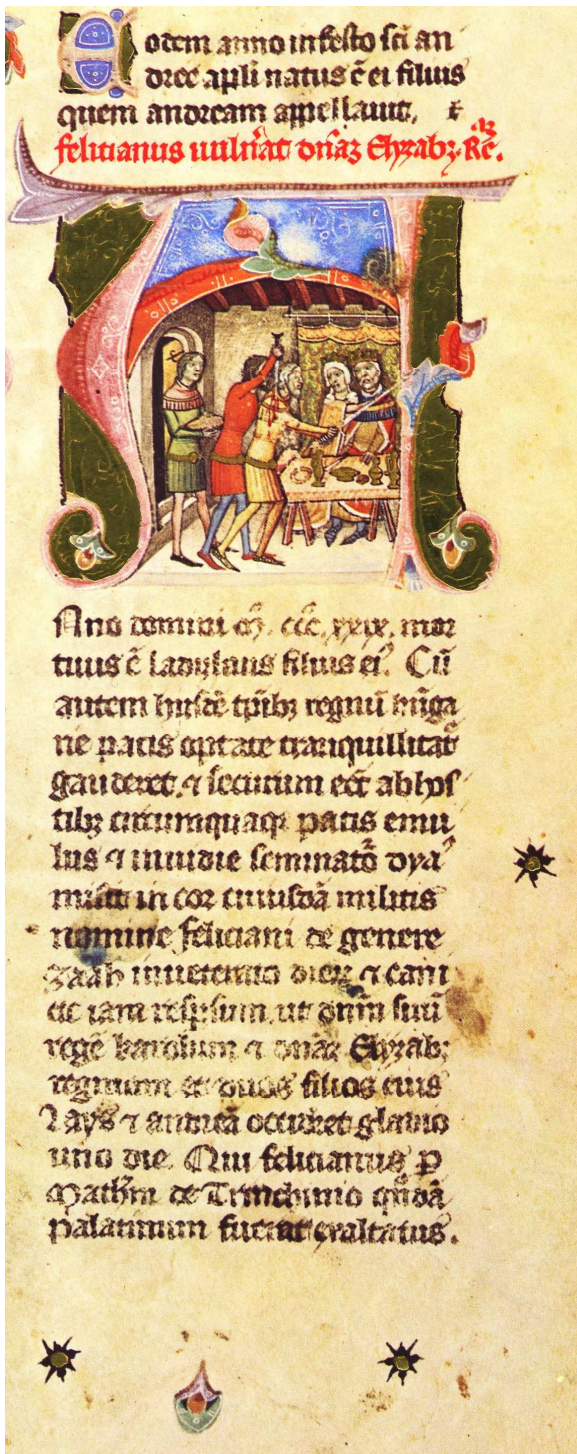 Eodem anno in festo sci an
dree apli natus ē ei filius
quem andream appellavit.
felicianus uulnat dnaz Elyzabz. Re.
Ano domini m. ccc. xxix. mor
tuus ē ladyslaus filius eiꝰ. Cū
autem huiꝰcē tpibz regnū hūga
rie pacis optate tranquillitate
gauderet. ⁊ securum eēt ab hos
tibz circumquaqꝫ pacis emu
lus ⁊ inuidie seminatō dya
misit in cor cuiusdā militis
nomine feliciani de genere
zaah inueterato dierz ⁊ cani
cie iam resp̄sum. ut dnm suū
regē karolum ⁊ dnaz Elyzabz
reginam et duos filios eius
Lays ⁊ andreā occideret gladio
uno die. Qui felicianus ꝑ
Matheū de Trinchinio quōdā
palatinum fuerat exaltatus.